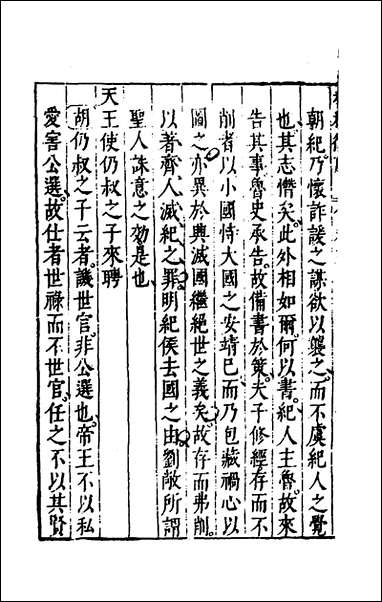 朝紀乃懷詐諼之謀欲以襲之而不虞紀人之覺
也其志憯矣此外相如爾何以書紀人主魯故來
告其事魯史承告故備書於策夫子修經存而不
削者以小國恃大國之安靖己而乃包藏禍心以
圖之亦異於興滅國繼絕世之義矣故存而弗削
以著齊人滅紀之罪明紀侯去國之由劉敞所謂
聖人誅意之効是也
天王使仍叔之子來聘
胡仍叔之子云者譏世官非公選也帝王不以私
愛害公選故仕者世祿而不世官任之不以其賢